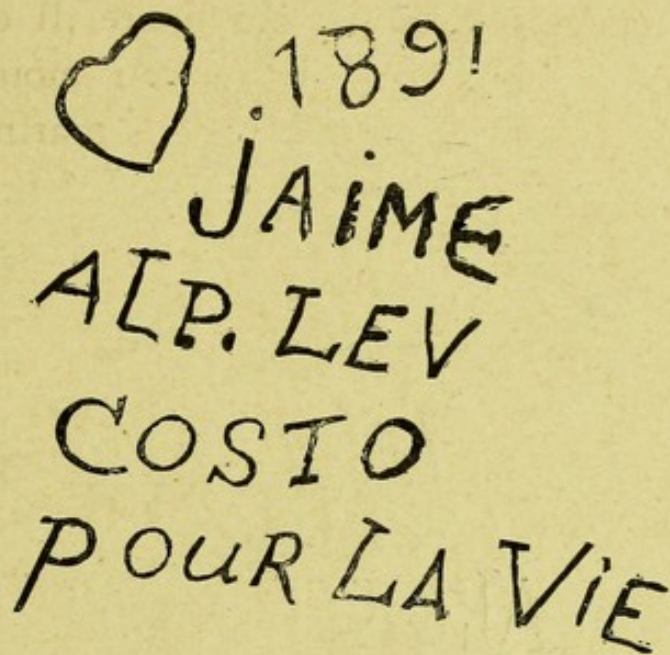 189!
JAIME
ALP. LEV
COSTO
POUR LA VIE